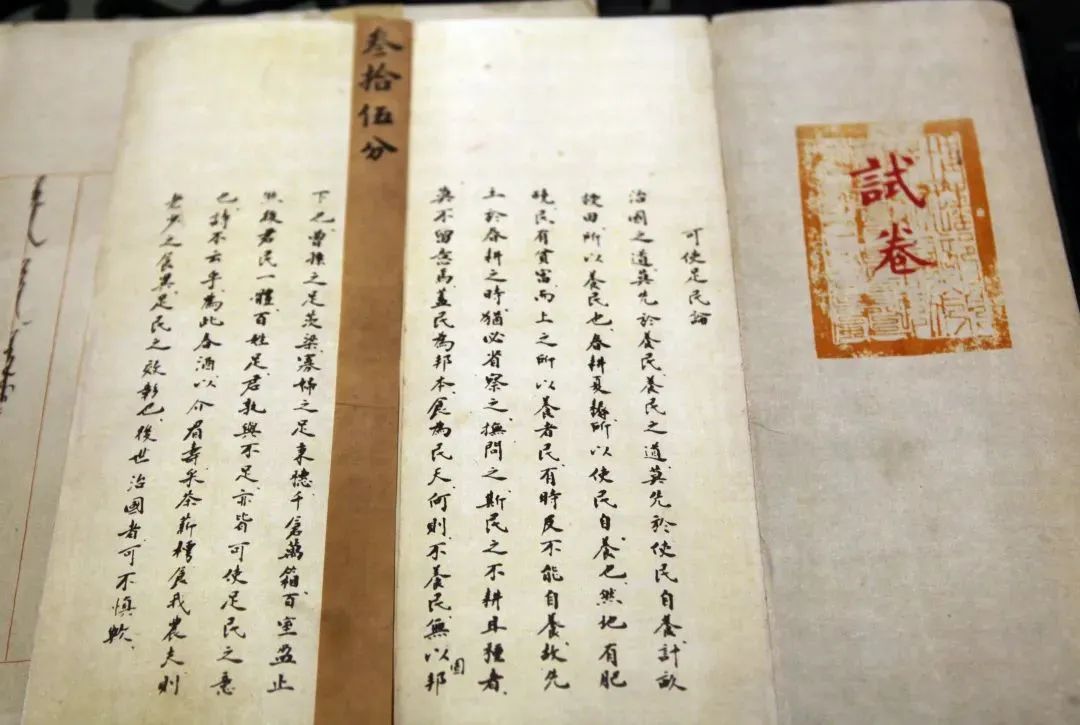 試卷
可使足民論
治國之道莫先於養民養民之道莫先於使民自養計畝
授田所以養民也春耕夏耨所以使民自養也然地有肥
磽民有貧富而上之所以養者民有時及不能自養故先
王於春耕之時猶必省察之撫問之斯民之不耕且種者
莫不留意焉蓋民為邦本食為民天何則不養民無以邦
固
叁拾伍分
下也曾孫之足茨梁寡婦之足秉穗千倉萬箱百室盈止
然後君民一體百姓足君孰與不足亦皆可使足民之意
也詩不云乎為此春酒以介眉壽采荼薪樗食我農夫則
老少之食與足民之效彰也後世治國者可不慎歟